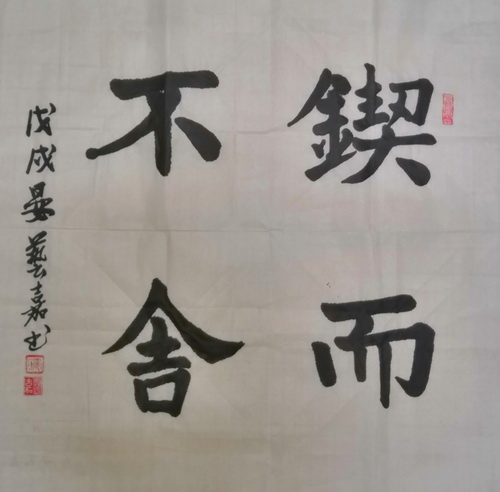 鍥而
不舍
戊戌晏藝嘉书